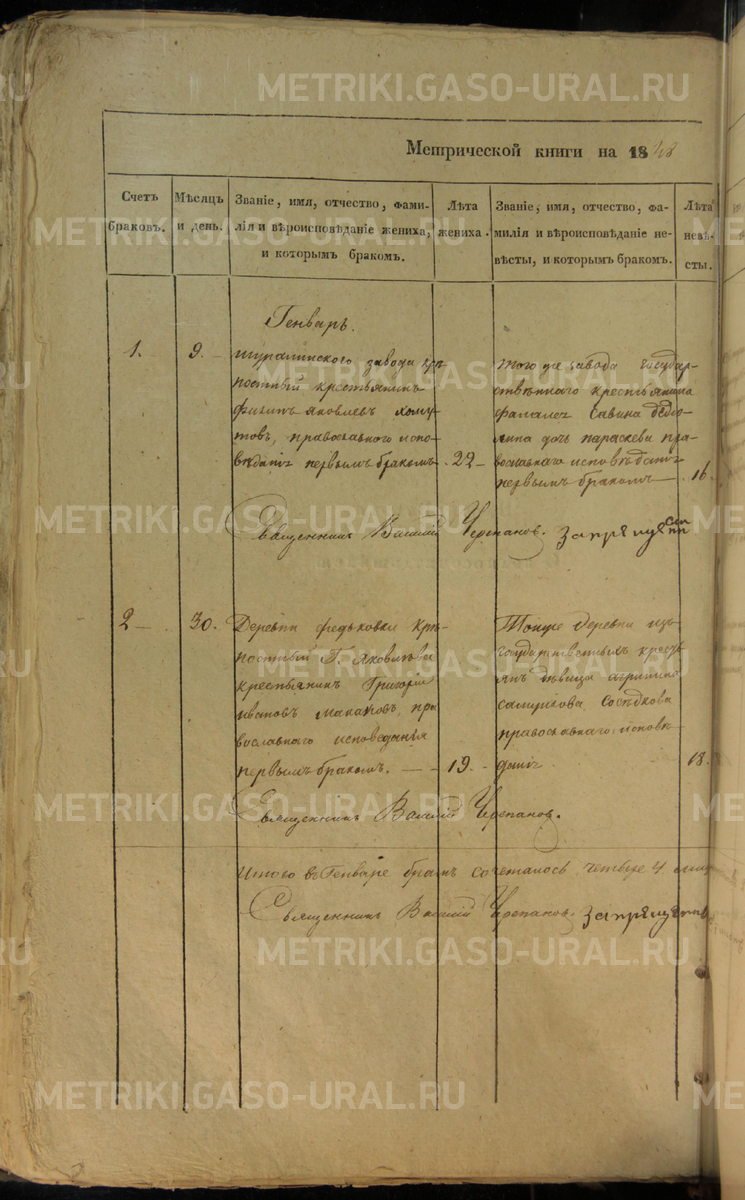 METRIKI.GASO-URAL.RU
Метрической книги на 1848
Счетъ
браковъ.
Мѣсяцъ
и день.
Званіе, имя, отчество, фами-
лія и вѣроисповѣданіе жениха,
и которымъ бракомъ.
Лѣта
жениха.
Званіе, имя, отчество, фа-
милія и вѣроисповѣданіе не-
вѣсты, и которымъ бракомъ.
Лѣта
невѣ-
сты.
Генварь.
1.
9.
Шуралинского завода крѣ-
постный крестьянинъ
Филипъ Яковлевъ Хому-
товъ, православнаго испо-
вѣданія первымъ бракомъ
22
того же завода государ-
ственнаго крестьянина
Савина
дочь Параскева пра-
вославнаго исповѣданія
первымъ бракомъ
16.
Священникъ Василій Черепановъ.
2
30.
Деревни Федьковки крѣ-
постный Г. Яковлева
крестьянинъ Григорій
Ивановъ православнаго исповеданія
первымъ бракомъ.
19.
Тойже деревни изъ
государственныхъ кресть
янъ дѣвица
Соседкова
православнаго исповѣ
данія
18.
Священникъ Василій Черепановъ.
Итого въ Генваре сочеталось четверо 4
Священникъ Василій Черепановъ.